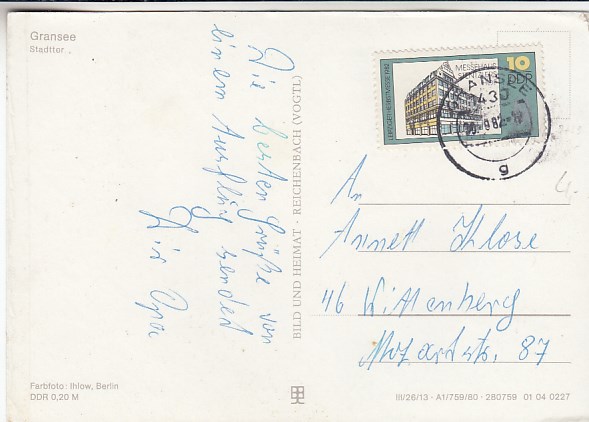 Gransee
Stadttor
Die besten Grüße von
einem Ausflug sendet
Dir Opa
BILD UND HEIMAT · REICHENBACH (VOGTL)
LEIPZIGER HERBSTMESSE 1982
MESSEHAUS
10
DDR
GRANSEE
1430
-9.82
g
An
Annett Klose
46 Wittenberg
Mozartstr. 87
Farbfoto: Ihlow, Berlin
DDR 0,20 M
III/26/13 · A1/759/80 · 280759 01 04 0227